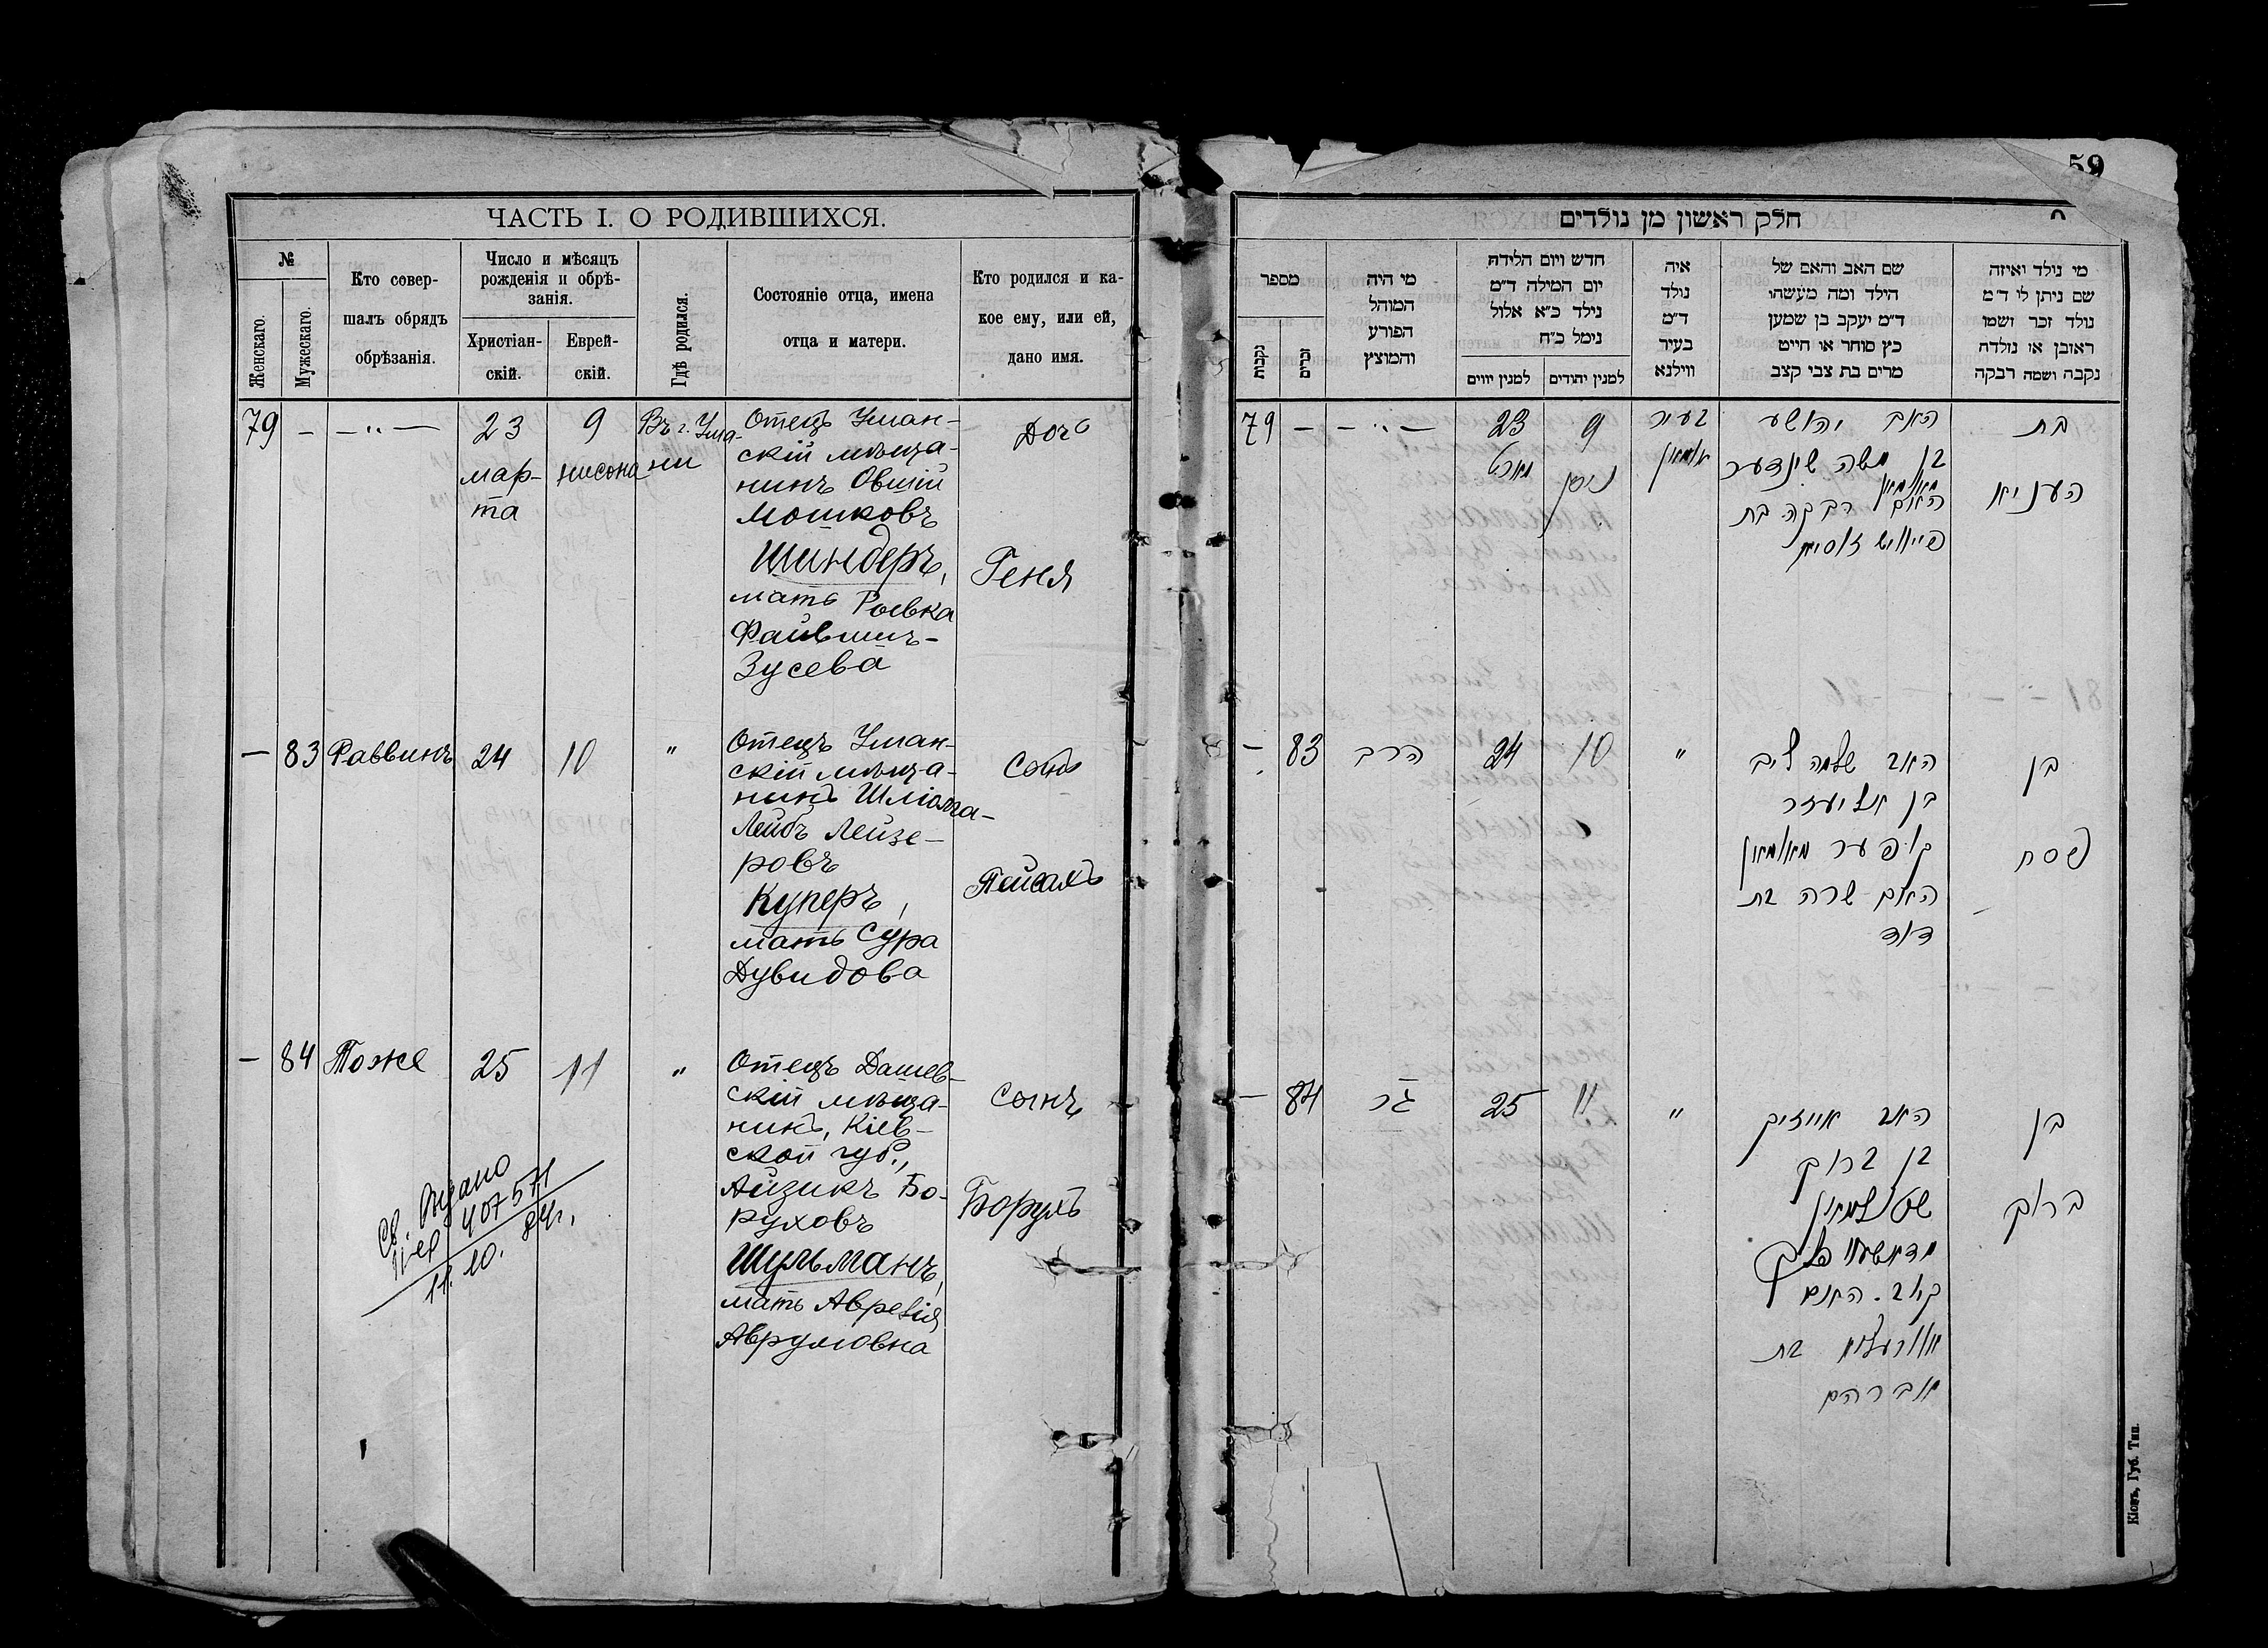 59
ЧАСТЬ I. О РОДИВШИХСЯ.
№
Женскаго.
Мужескаго.
Кто совер-
шалъ обрядъ
обрѣзанія.
Число и мѣсяцъ
рожденія и обрѣ-
занія.
Христіан-
скій.
Еврей-
скій.
Гдѣ родился.
Состояніе отца, имена
отца и матери.
Кто родился и ка-
кое ему, или ей,
дано имя.
79 – – „ –
23
мар-
та
9
нисона
Въ г. Ума-
ни
Отецъ Уман-
скій мѣща-
нинъ Овшій
Мошковъ
Шиндеръ,
мать Ривка
Файвишъ-
Зусева
Дочь
Геня
– 83 Раввинъ 24 10 "
Отецъ Уман-
скій мѣща-
нинъ Шліома-
Лейбъ Лейзе-
ровъ
Куперъ,
мать Сура
Дувидова
Сынъ
Пейсахъ
– 84 Тоже 25 11 "
Отецъ Дашев-
скій мѣща-
нинъ, Кіев-
ской губ.,
Айзикъ Бо-
руховъ
Шульманъ,
мать
Аврумовна
Сынъ
Борухъ
св. видано
407571
11. 10. 84г.
חלק ראשון מן נולדים
מספר
נקבות
זכרים
מי היה
המוהל
הפורע
והמוצץ
חדש ויום הלידה
יום המילה ד״מ
נילד כ״א אלול
נימל כ״ח
למנין יווים
למנין יהודים
איה
נולד
ד״מ
בעיר
ווילנא
שם האב והאם של
הילד ומה מעשהו
ד״מ יעקב בן שמען
כץ סוחר או חייט
מרים בת צבי קצב
מי נולד ואיזה
שם ניתן לי ד״מ
נולד זכר ושמו
ראובן או נולדה
נקבה ושמה רבקה
79 – – „ –
23
מארט
9
ניסן
בעיר
אומאן
האב יהושע
בן משה שינדער
מאומאן
האם רבקה בת
פייוויש זוסיא
בת
העניא
– 83 הרב 24 10 "
האב שלמה ליב
בן אליעזר
קופער מאומאן
האם שרה בת
דוד
בן
פסח
– 84 גר 25 11 "
האב אייזיק
בן ברוך
שולמאן
האם
בת
אברהם
בן
ברוך
Кіевъ, Губ. Тип.